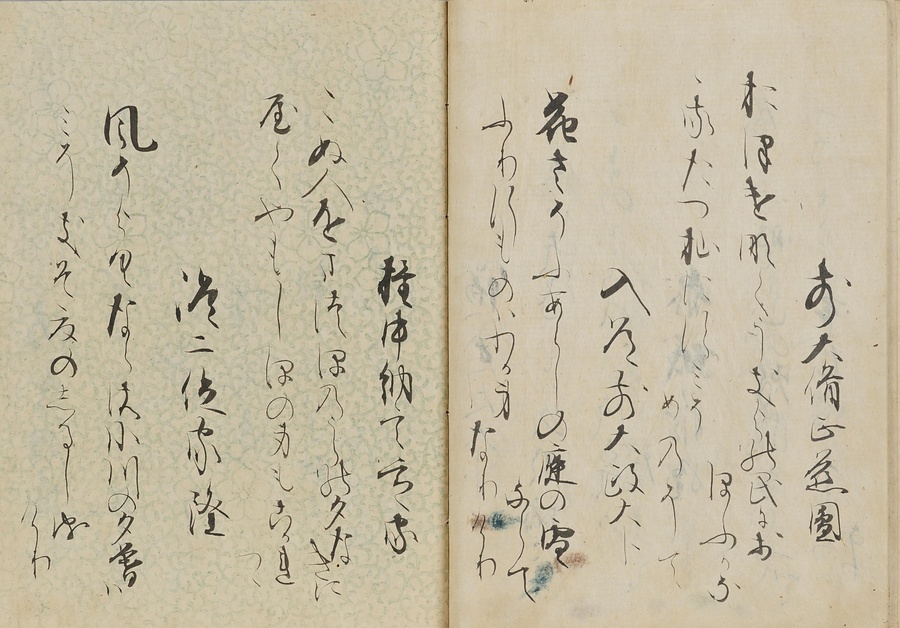 前大僧正慈圓
おほけなくうき世の民におほふかな
わかたつ杣にすみそめのそて
入道前太政大臣
花さそふあらしの庭の雪ならて
ふりゆくものはわか身なりけり
権中納言定家
こぬ人をまつほのうらの夕なきに
やくやもしほの身もこかれつゝ
従二位家隆
風そよくならの小川の夕暮は
みそきそ夏のしるしなりけり